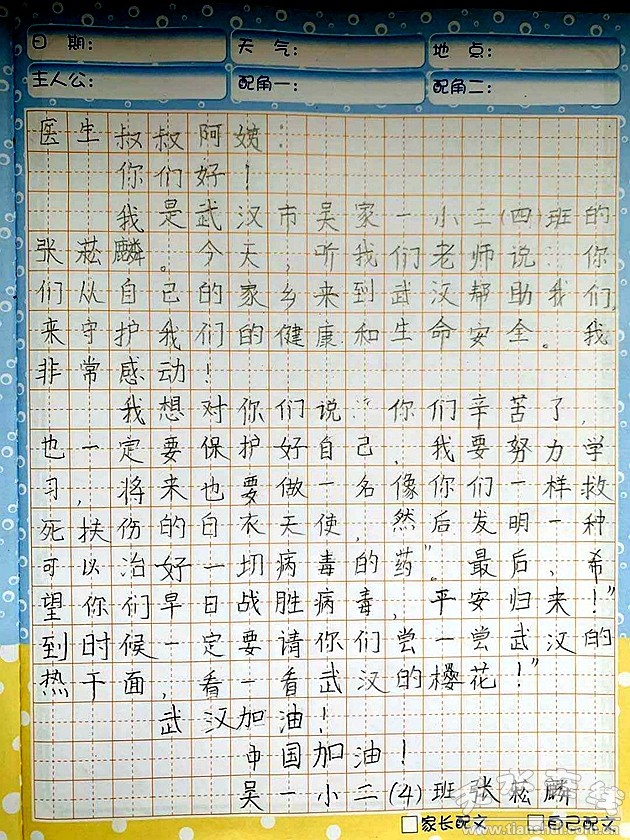 日 期:
天 气:
地 点:
主人公:
配角一:
配角二:
医生叔叔阿姨:
你们好!
我是武汉市吴家一小二(四)班的
张菘麟。今天,听我们老师说:你
们从自己的家乡来到武汉帮助我们,
来守护我们的健康和生命安全。我
非常感动!
我想对你们说:你们辛苦了,
也一定要保护好自己,我要努力学
习,将来也要做一名像你们一样救
死扶伤的白衣天使,然后发明一种
可以治好一切病毒的药”。最后、希
望你们早日战胜病毒,平安归来!”
到时候一定要请你们尝一尝武汉的
热干面,看一看武汉的樱花!”
武汉加油!
中国加油!
吴一小二(4)班张菘麟
家长配文
自己配文
www.tianshui.com.cn